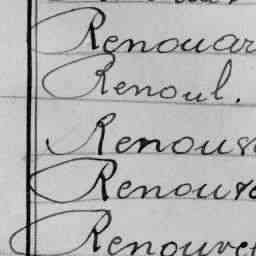 Renouar
Renoul.
Renous
Renous
Renouve